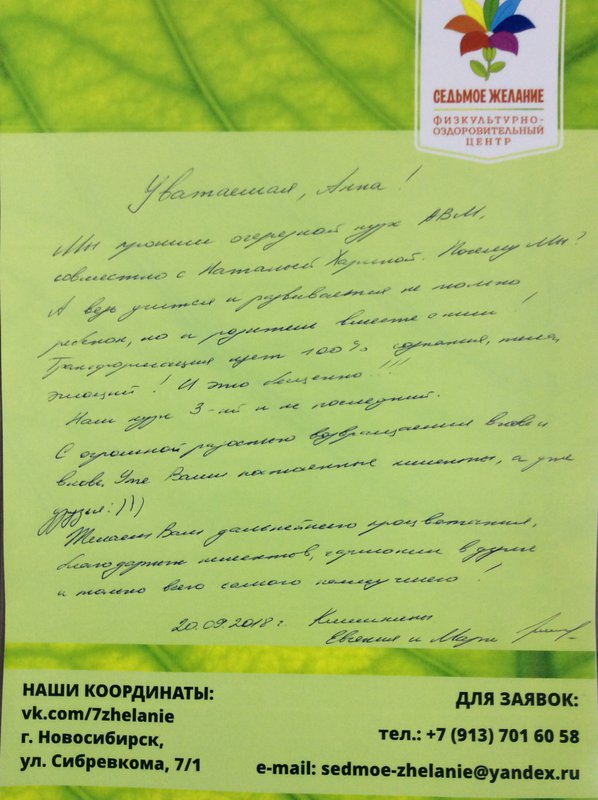 СЕДЬМОЕ ЖЕЛАНИЕ
ФИЗКУЛЬТУРНО-
ОЗДОРОВИТЕЛЬНЫЙ
ЦЕНТР
Уважаемая, Анна!
Мы прошли очередной курс АВМ,
совместно с Натальей. Почему Мы?
А ведь учится и развивается не только
ребенок, но и родители вместе с ним!
Трансформация идет 100% сознания, тела,
эмоций! И это бесценно!!!
Наш курс 3-ий и не последний.
С огромной радостью возвращаемся вновь и
вновь. Уже Ваши постоянные клиенты, а уже
друзья:)))
Желаем Вам дальнейшего процветания,
благодарных клиентов, гармонии в душе
и только всего самого наилучшего!
20.09.2018 г.
Евгения и Марк
НАШИ КООРДИНАТЫ:
vk.com/7zhelanie
г. Новосибирск,
ул. Сибревкома, 7/1
ДЛЯ ЗАЯВОК:
тел.: +7 (913) 701 60 58
e-mail: sedmoe-zhelanie@yandex.ru